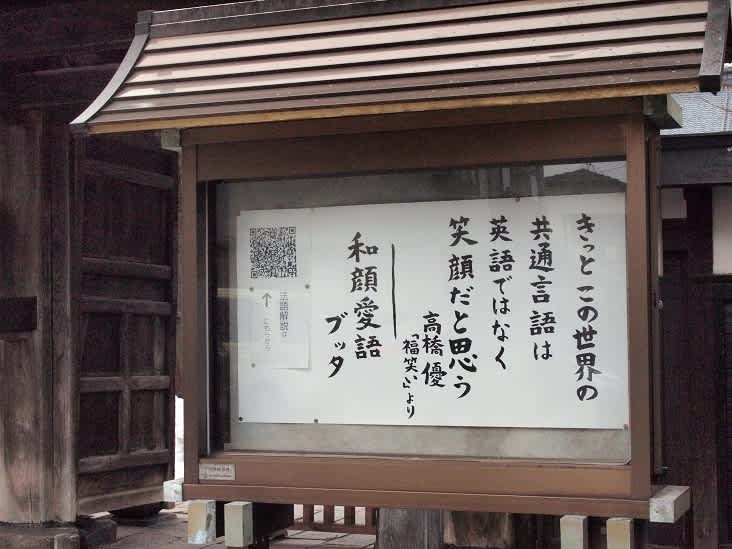 きっとこの世界の
共通言語は
英語ではなく
笑顔だと思う
高橋優
「福笑い」より
和顔愛語
ブッタ
法語解説は
↑こちらから